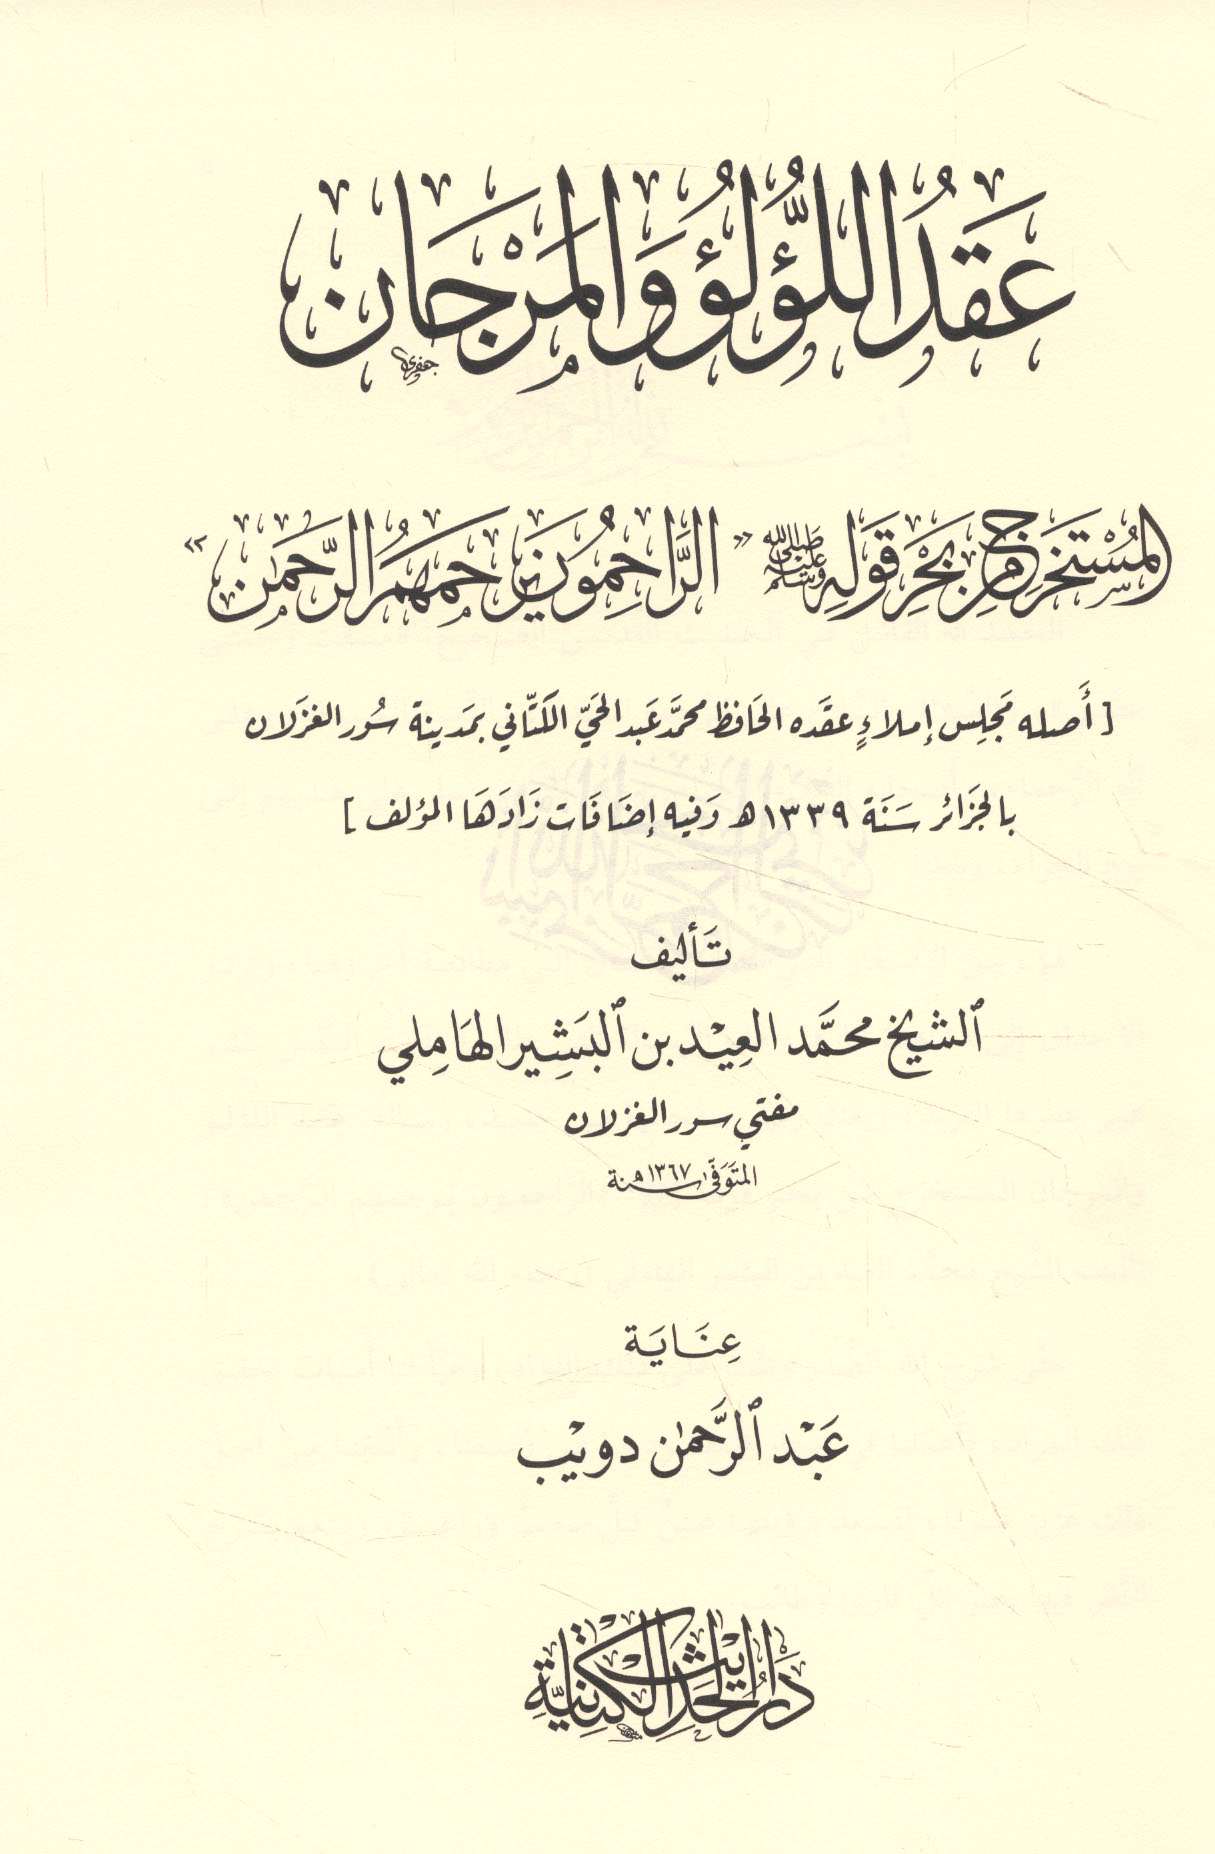 عَقدُ اللُّؤلُؤ وَالمَرْجَان
المُسْتَخرَج مِن بَحْرِ قَولِهِ ﷺ «الرَّاحِمُونَ يَرحَمهُمُ الرَّحمَن»
[ أَصله مَجلِس إملاءٍ عقَده الحَافظ محمَّد عَبد الحَيّ الكَتّاني بمَدينة سُور الغزَلان
بالجزَائر سَنَة ١٣٣٩هـ وَفيه إضَافَات زَادَهَا المؤلف ]
تَأليف
الشيخ محمَّد العِيْد بن البَشِير الهَامِلي
مفتي سور الغزلان
المتَوَفّى سنة ١٣٦٧هـ
عِنَايَة
عَبْد الرَّحمٰن دويْب
دَارُ الحَدِيث الكتَّانِيَّة